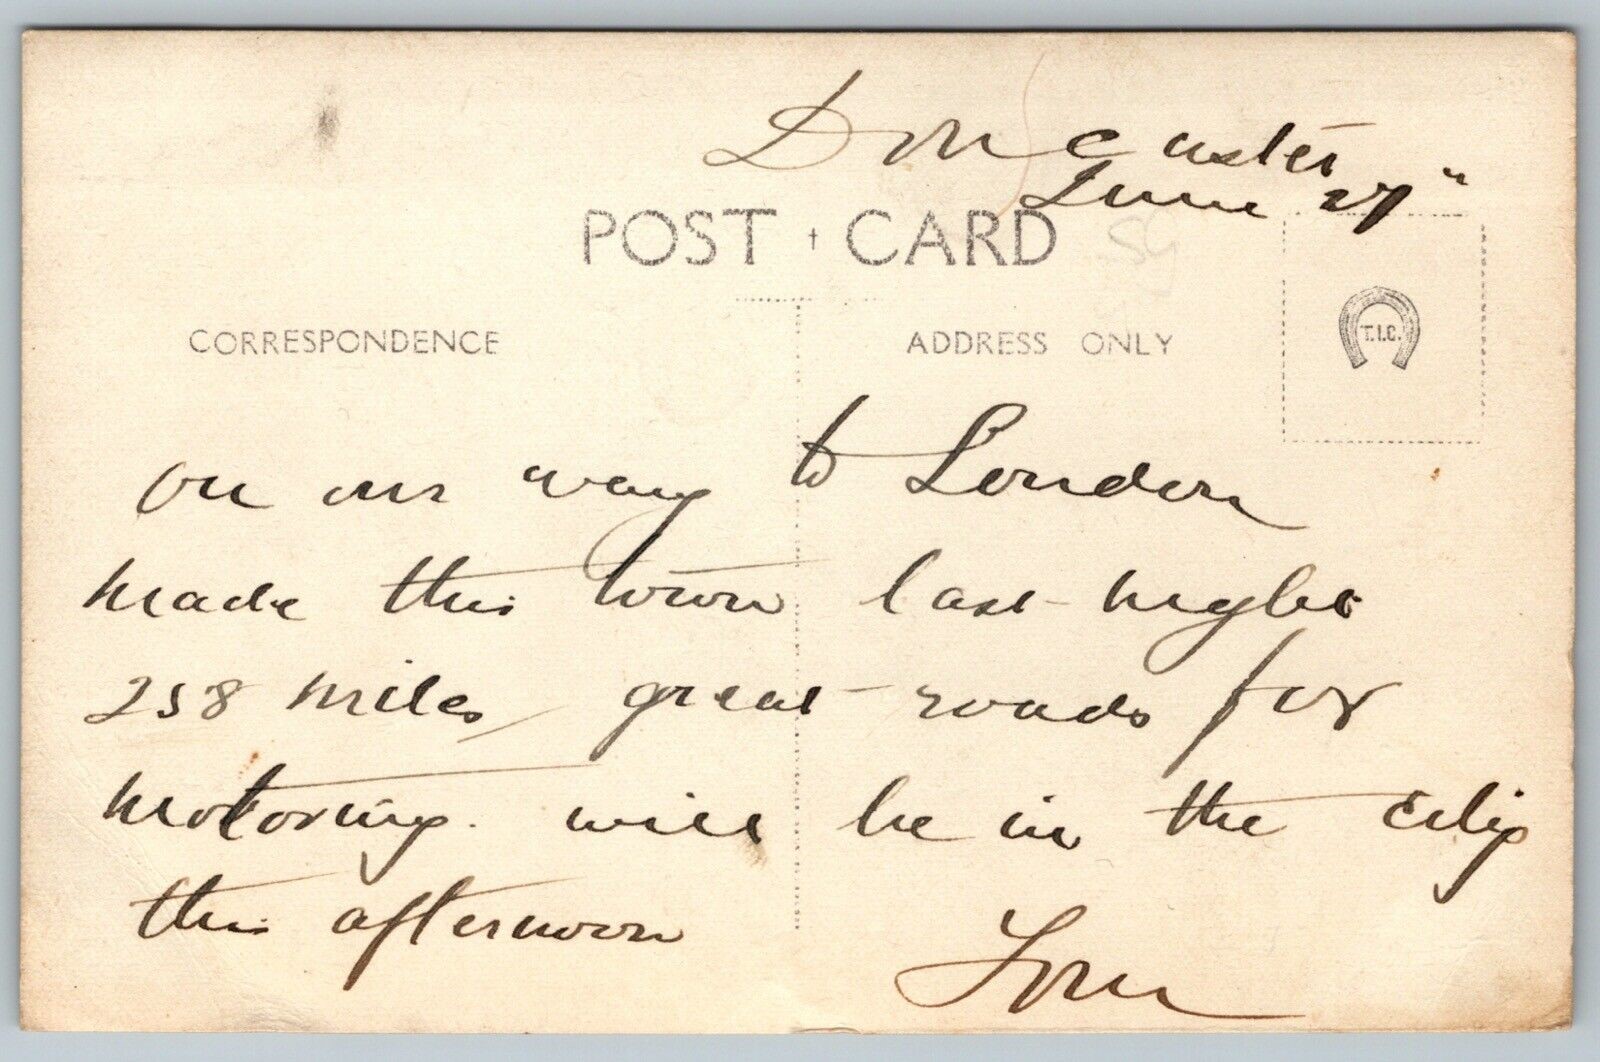 Doncaster
June 27"
POST CARD
CORRESPONDENCE
ADDRESS ONLY
T.I.C.
on our way to London
made this town last night
258 miles, great roads for
motoring. will be in the
this afternoon
Tom